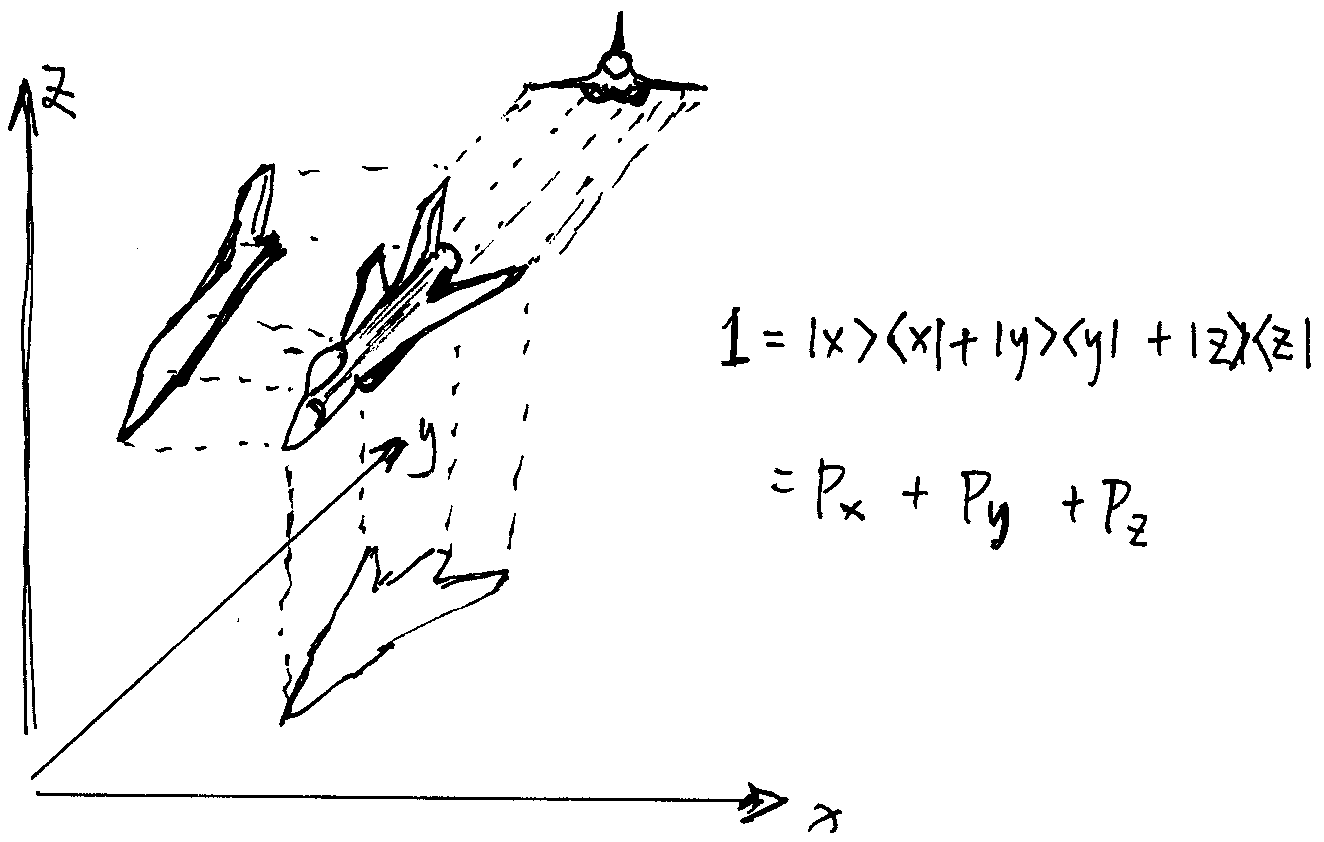 z
y
x
1 = |x><x| + |y><y| + |z><z|
= Px + Py + Pz